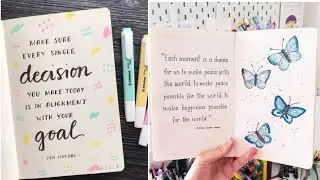 MAKE SURE
EVERY SINGLE
decision
YOU MAKE TODAY
IS IN ALIGNMENT
WITH YOUR
goal
- JEN SINCERO -
"Each moment is a chance
for us to make peace with
the world, to make peace
possible for the world, to
make happiness possible
for the world."